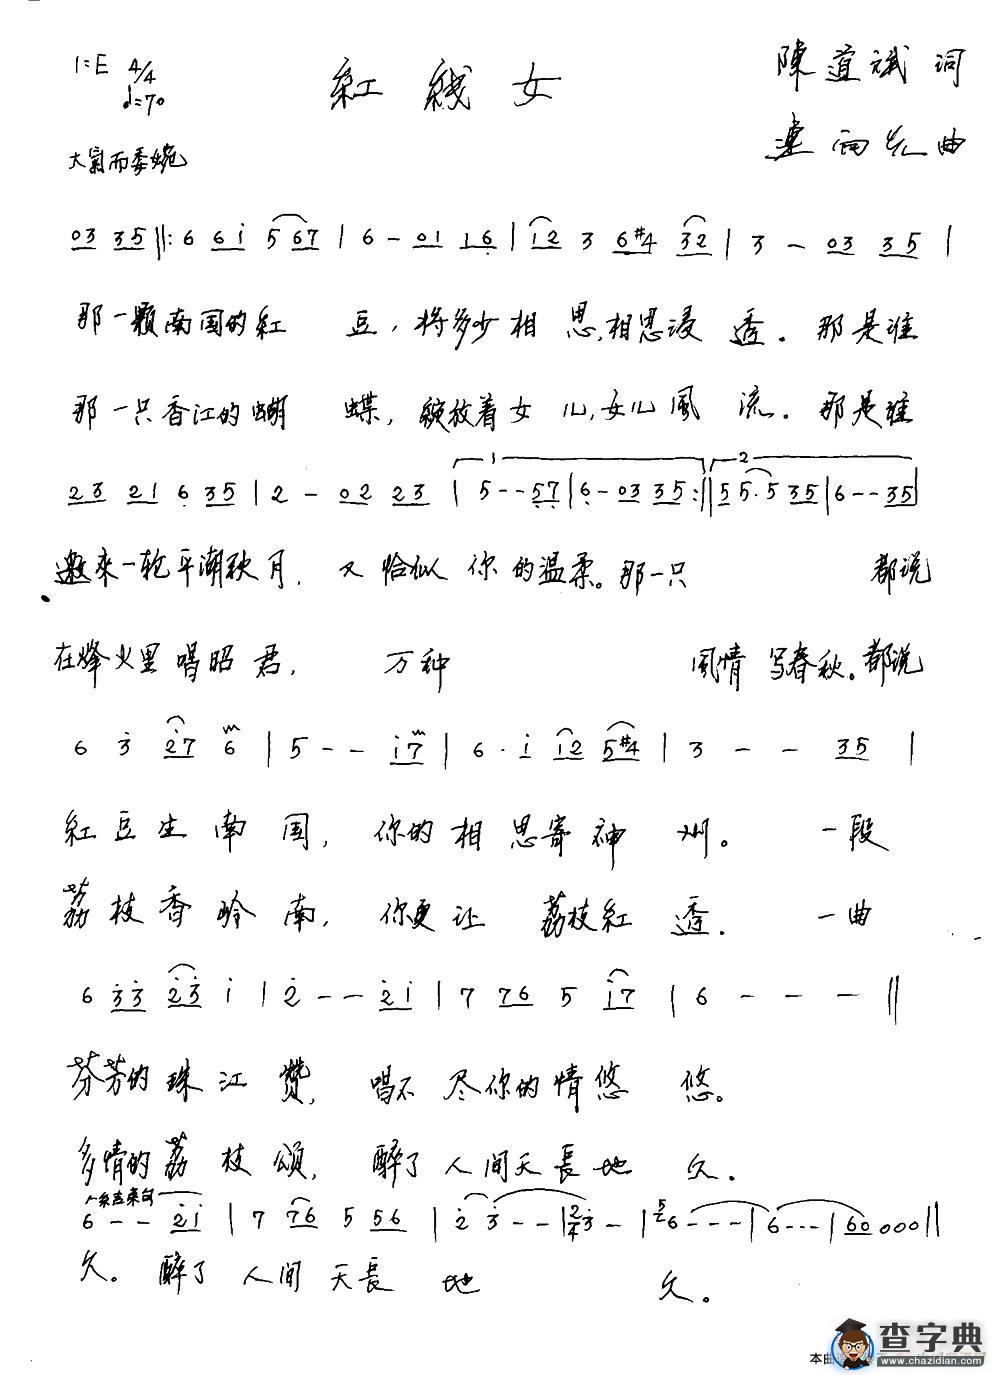 1=E 4/4
♩=70
紅线女
陳道斌 词
連向先 曲
大氣而委婉
03 35 ‖: 6 61 5 67 | 6 - 01 16 | 12 3 6#4 32 | 3 - 03 35 |
那一颗南国的紅 豆，将多少相 思，相思浸 透。那是谁
那一只香江的蝴 蝶，绽放着女 儿，女儿風 流。那是谁
23 21 6 35 | 2 - 02 23 | 1 5 - - 57 | 6 - 03 35 :‖ 2 55·5 35 | 6 - - 35 |
邀來一轮平潮秋月，又恰似你的温柔。那一只 都说
在烽火里唱昭君， 万种 風情写春秋。都说
6 3 27 6 | 5 - - 17 | 6 · 1 12 5#4 | 3 - - 35 |
紅豆生南国，你的相思寄神州。一段
荔枝香岭南，你更让荔枝紅透。一曲
6 33 23 1 | 2 - - 21 | 7 76 5 17 | 6 - - - ‖
芬芳的珠江赞，唱不尽你的情悠悠。
多情的荔枝颂，醉了人间天長地久。
结束句
6 - - 21 | 7 76 5 56 | 2 3 - - | 2/4 3 - | 5 6 - - - | 6 - - - | 60 000 ‖
久。醉了人间天長地 久。
本曲
查字典
www.chazidian.com